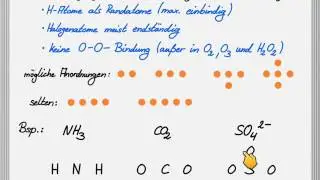 • H-Atome als Randatome (max. einbindig)
• Halogenatome meist endständig
• keine O-O-Bindung (außer in O₂, O₃ und H₂O₂)
mögliche Anordnungen:
selten:
Bsp.: NH₃ CO₂ SO₄²⁻
O
H N H O C O O S O